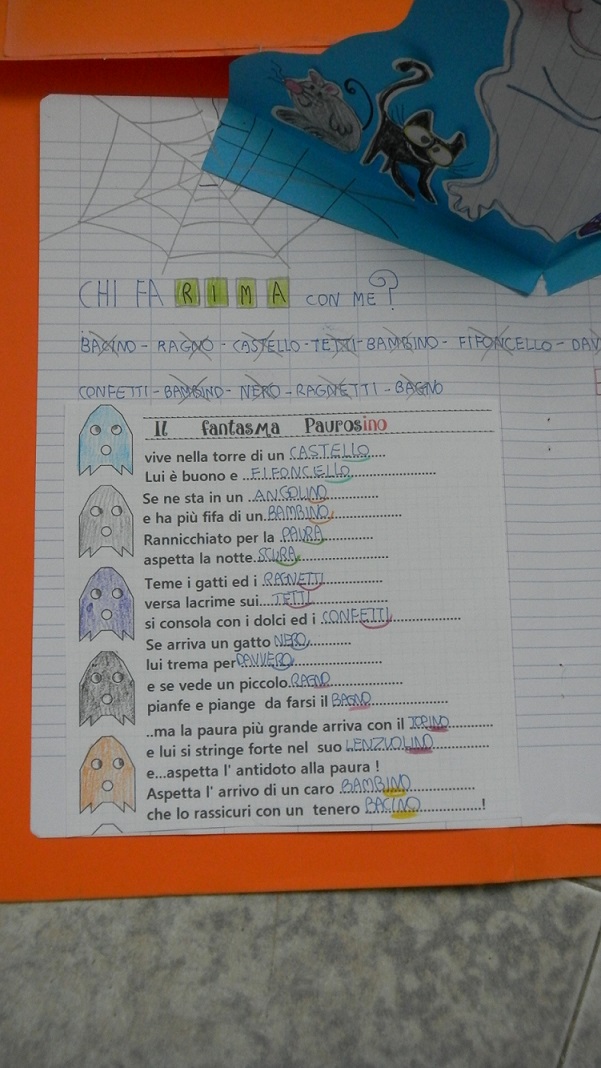 CHI FA RIMA CON ME?
BACINO - RAGNO - CASTELLO - TETTI - BAMBINO - FIFONCELLO - DAV
CONFETTI - BAMBINO - NERO - RAGNETTI - BAGNO
Il fantasma Paurosino
vive nella torre di un CASTELLO
Lui è buono e FIFONCELLO
Se ne sta in un ANGOLINO
e ha più fifa di un BAMBINO
Rannicchiato per la PAURA
aspetta la notte SCURA
Teme i gatti ed i RAGNETTI
versa lacrime sui TETTI
si consola con i dolci ed i CONFETTI
Se arriva un gatto NERO
lui trema per DAVVERO
e se vede un piccolo RAGNO
pianfe e piange da farsi il BAGNO
..ma la paura più grande arriva con il TOPINO
e lui si stringe forte nel suo LENZUOLINO
e...aspetta l' antidoto alla paura !
Aspetta l' arrivo di un caro BAMBINO
che lo rassicuri con un tenero BACINO !